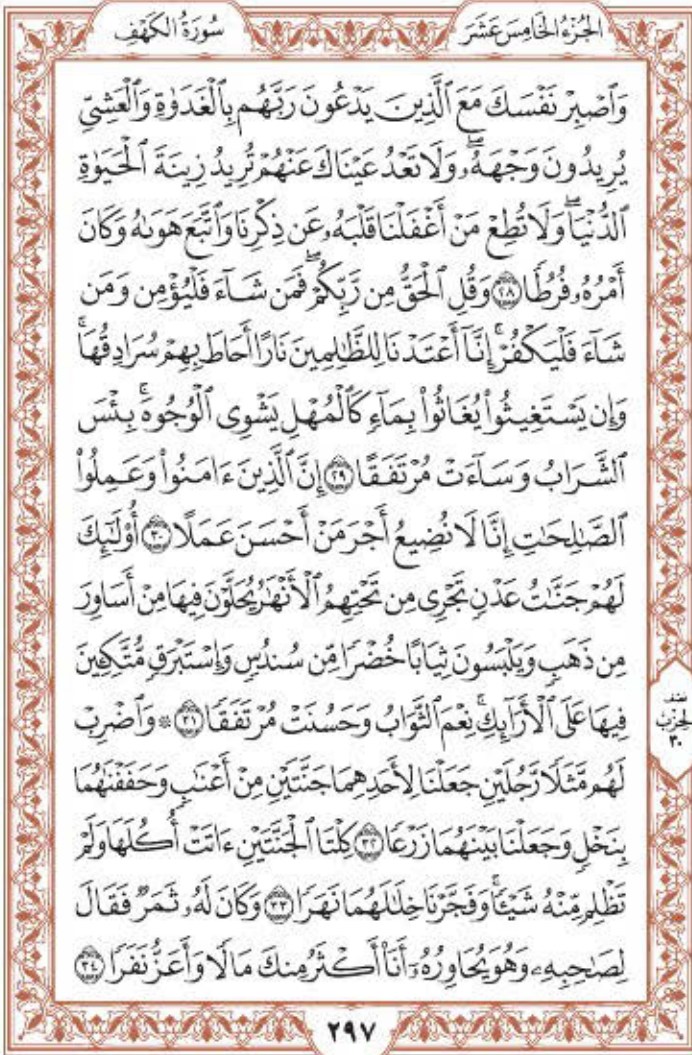 الجُزْءُ الخَامِسَ عَشَرَ
سُورَةُ الكَهْفِ
وَٱصْبِرْ نَفْسَكَ مَعَ ٱلَّذِينَ يَدْعُونَ رَبَّهُم بِٱلْغَدَوٰةِ وَٱلْعَشِيِّ
يُرِيدُونَ وَجْهَهُۥۖ وَلَا تَعْدُ عَيْنَاكَ عَنْهُمْ تُرِيدُ زِينَةَ ٱلْحَيَوٰةِ
ٱلدُّنْيَاۖ وَلَا تُطِعْ مَنْ أَغْفَلْنَا قَلْبَهُۥ عَن ذِكْرِنَا وَٱتَّبَعَ هَوَىٰهُ وَكَانَ
أَمْرُهُۥ فُرُطًا ۝٢٨ وَقُلِ ٱلْحَقُّ مِن رَّبِّكُمْۖ فَمَن شَآءَ فَلْيُؤْمِن وَمَن
شَآءَ فَلْيَكْفُرْۚ إِنَّآ أَعْتَدْنَا لِلظَّٰلِمِينَ نَارًا أَحَاطَ بِهِمْ سُرَادِقُهَاۚ
وَإِن يَسْتَغِيثُوا۟ يُغَاثُوا۟ بِمَآءٍ كَٱلْمُهْلِ يَشْوِى ٱلْوُجُوهَۚ بِئْسَ
ٱلشَّرَابُ وَسَآءَتْ مُرْتَفَقًا ۝٢٩ إِنَّ ٱلَّذِينَ ءَامَنُوا۟ وَعَمِلُوا۟
ٱلصَّٰلِحَٰتِ إِنَّا لَا نُضِيعُ أَجْرَ مَنْ أَحْسَنَ عَمَلًا ۝٣٠ أُو۟لَٰٓئِكَ
لَهُمْ جَنَّٰتُ عَدْنٍ تَجْرِى مِن تَحْتِهِمُ ٱلْأَنْهَٰرُ يُحَلَّوْنَ فِيهَا مِنْ أَسَاوِرَ
مِن ذَهَبٍ وَيَلْبَسُونَ ثِيَابًا خُضْرًا مِّن سُندُسٍ وَإِسْتَبْرَقٍ مُّتَّكِـِٔينَ
فِيهَا عَلَى ٱلْأَرَآئِكِۚ نِعْمَ ٱلثَّوَابُ وَحَسُنَتْ مُرْتَفَقًا ۝٣١ ۞ وَٱضْرِبْ
نصف
الحزب
٣٠
لَهُم مَّثَلًا رَّجُلَيْنِ جَعَلْنَا لِأَحَدِهِمَا جَنَّتَيْنِ مِنْ أَعْنَٰبٍ وَحَفَفْنَٰهُمَا
بِنَخْلٍ وَجَعَلْنَا بَيْنَهُمَا زَرْعًا ۝٣٢ كِلْتَا ٱلْجَنَّتَيْنِ ءَاتَتْ أُكُلَهَا وَلَمْ
تَظْلِم مِّنْهُ شَيْـًٔاۚ وَفَجَّرْنَا خِلَٰلَهُمَا نَهَرًا ۝٣٣ وَكَانَ لَهُۥ ثَمَرٌ فَقَالَ
لِصَٰحِبِهِۦ وَهُوَ يُحَاوِرُهُۥٓ أَنَا۠ أَكْثَرُ مِنكَ مَالًا وَأَعَزُّ نَفَرًا ۝٣٤
٢٩٧